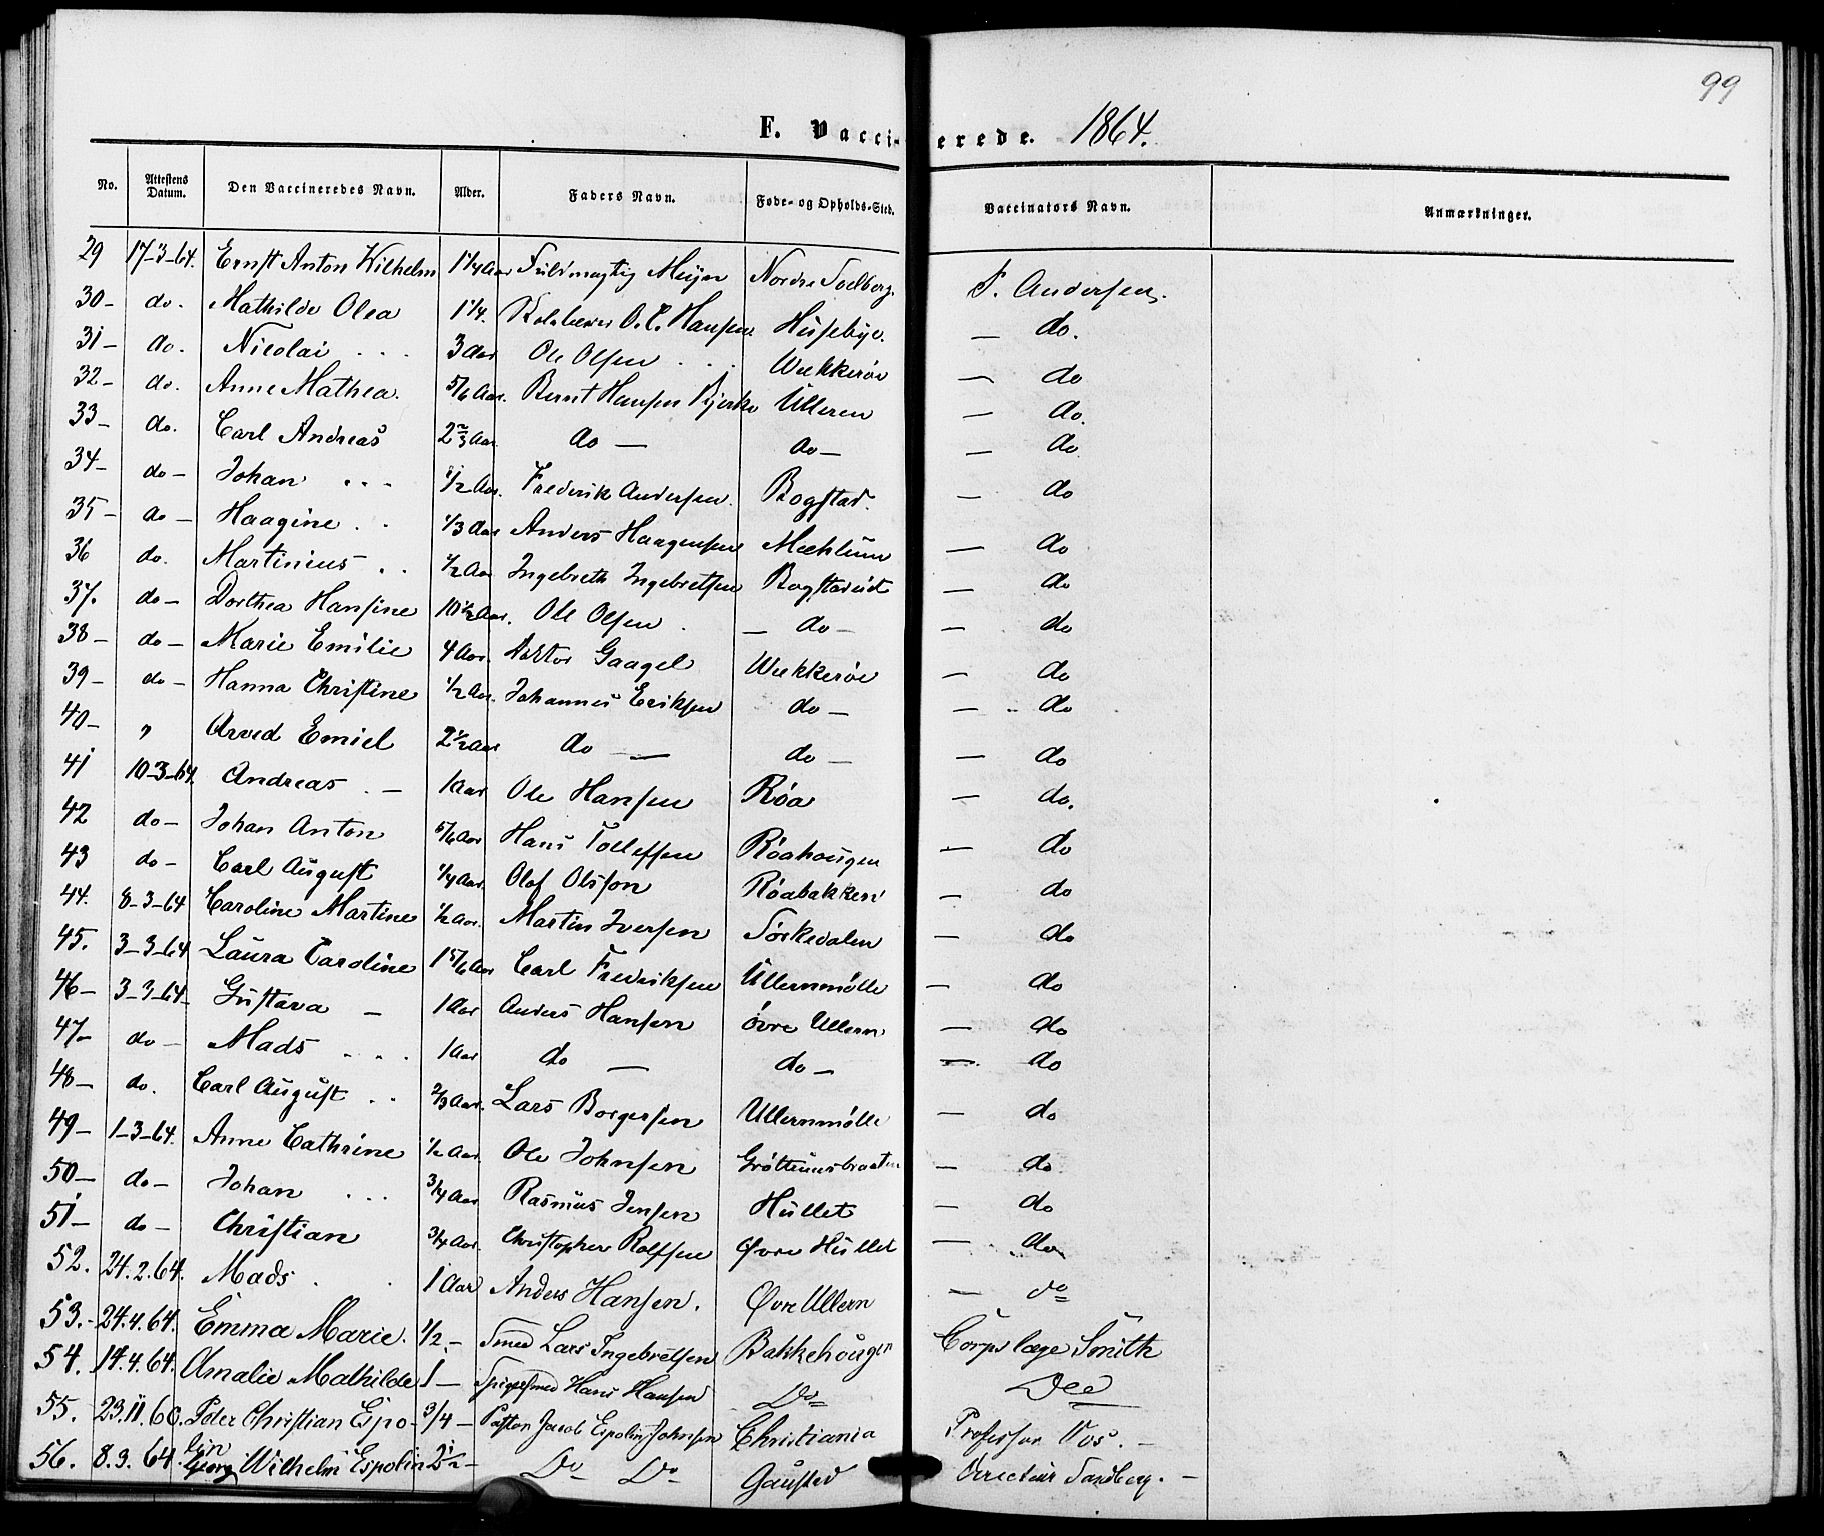 99
F. Vaccinerede. 1864.
No. Attestens Datum. Den Vaccineredes Navn. Alder. Faders Navn. Føde- og Opholds-Sted. Vaccinators Navn. Anmærkninger.
29 17-3-64. Ernst Anton Wilhelm 1 1/4 Aar Fuldmægtig Meijer Nordre P. Andersen.
30- do. Mathilde Olea 1 1/4. O. C. Hansen Husebye. — do.
31- do. Nicolai . . . 3 Aar Ole Olsen . . . Wækkerøe — do
32- do. Anne Mathea. 5/6 Aar. Bernt Hansen Bjerke Ulleren — do.
33- do. Carl Andreas 2 2/3 Aar do — do — — do
34- do — Johan . . . 1/2 Aar. Frederik Andersen. Bogstad. — do
35- do — Haagine . . 1/3 Aar Anders Haagensen Mæhlum — do
36 do. Martinius . . 1/2 Aar Ingebreth Ingebretsen Bogstad — do
37. do — Dorthea Hansine 10 1/2 Aar. Ole Olsen . — do — — do
38- do — Marie Emilie 4 Aar. Gaagel Wækkerøe — do
39- do — Hanna Christine 1/2 Aar. Johannes Eriksen do — — do
40- " Arved Emiel 2 1/2 Aar do — do — — do
41 10-3-64. Andreas . — 1 Aar Ole Hansen Røa — do.
42 do — Johan Anton 5/6 Aar Hans Tollefsen Røahougen — do
43 do — Carl August 1/4 Aar. Olof Olsson Røabakken — do
44. 8-3-64 Caroline Martine 1/2 Aar. Martin Iversen Sørkedalen — do
45. 3-3-64 Laura Caroline 1 5/6 Aar Carl Frederiksen Ullernmølle — do
46- 3-3-64- Gustava — 1 Aar Anders Hansen Øvre Ullern — do
47- do — Mads . . . 1 Aar do — do — — do
48- do. Carl August . . 2/3 Aar. Lars Borgersen Ullernmølle — do
49- 1-3-64. Anne Cathrine 1/2 Aar. Ole Johnsen Grøttumsbraaten — do
50- do — Johan . . . 3/4 Aar Rasmus Jensen Hullet — do
51- do — Christian 3/4 Aar. Christopher Rolfsen Øvre Hullet — do
52. 24.2.64. Mads . . 1 Aar Anders Hansen. Øvre Ullern — do
53.- 24.4.64. Emma Marie. 1/2.- Smed Lars Ingebretsen Bakkehougen Corpslæge Smith
54. 14.4.64. Amalie Mathilde 1 — Spigersmed Hans Hansen Do
55. 23.11.60. Peder Christian Espo- 3/4 — Pastor Jacob Espolin Johnsen Christiania Professor Vos. —
lin
56. 8.9.64. Georg Wilhelm Espolin 2 1/2 — Do Do Gaustad Directeur Sandberg. —